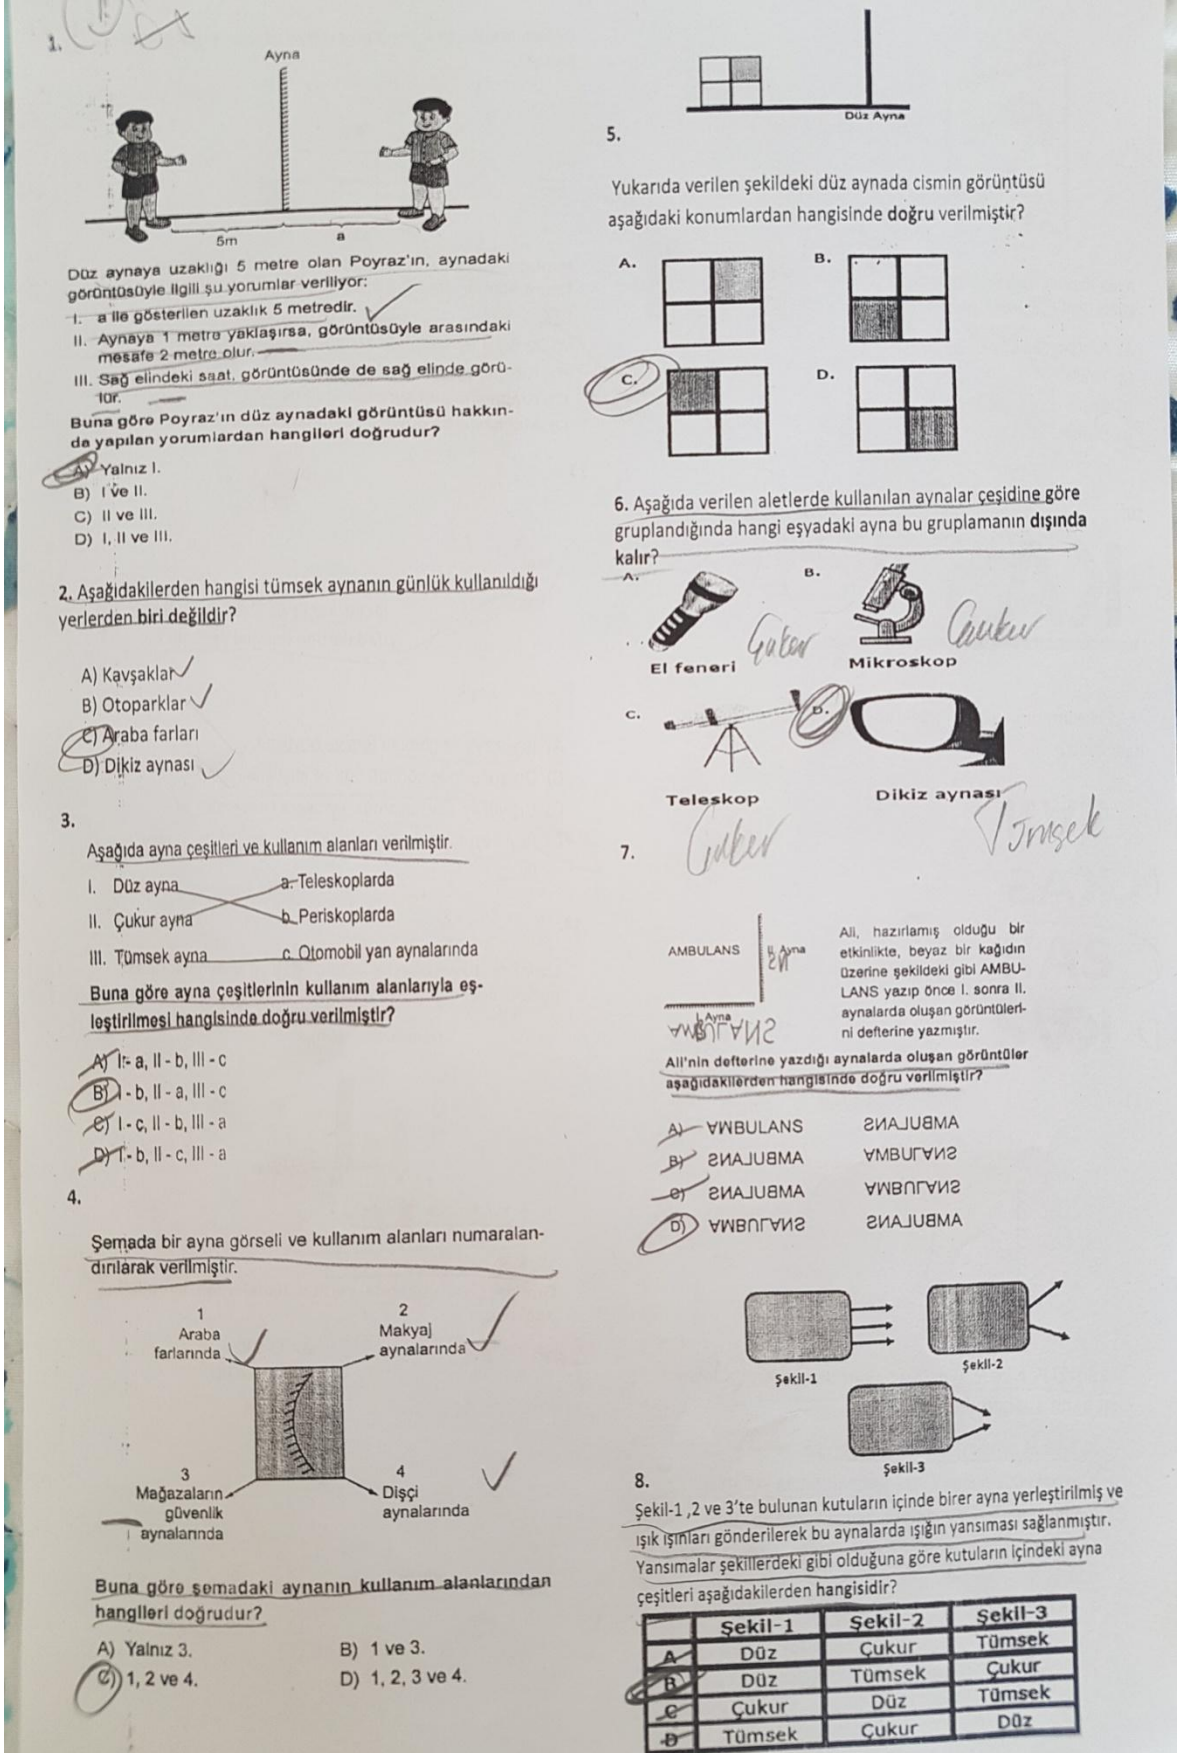 1.
Ayna
5m
a
Düz aynaya uzaklığı 5 metre olan Poyraz'ın, aynadaki
görüntüsüyle ilgili şu yorumlar veriliyor:
I. a ile gösterilen uzaklık 5 metredir.
II. Aynaya 1 metre yaklaşırsa, görüntüsüyle arasındaki
mesafe 2 metre olur.
III. Sağ elindeki saat, görüntüsünde de sağ elinde görü-
lür.
Buna göre Poyraz'ın düz aynadaki görüntüsü hakkın-
da yapılan yorumlardan hangileri doğrudur?
A) Yalnız I.
B) I ve II.
C) II ve III.
D) I, II ve III.
2. Aşağıdakilerden hangisi tümsek aynanın günlük kullanıldığı
yerlerden biri değildir?
A) Kavşaklar
B) Otoparklar
C) Araba farları
D) Dikiz aynası
3.
Aşağıda ayna çeşitleri ve kullanım alanları verilmiştir.
I. Düz ayna a. Teleskoplarda
II. Çukur ayna b. Periskoplarda
III. Tümsek ayna c. Otomobil yan aynalarında
Buna göre ayna çeşitlerinin kullanım alanlarıyla eş-
leştirilmesi hangisinde doğru verilmiştir?
A) I - a, II - b, III - c
B) I - b, II - a, III - c
C) I - c, II - b, III - a
D) I - b, II - c, III - a
4.
Şemada bir ayna görseli ve kullanım alanları numaralan-
dırılarak verilmiştir.
1 2
Araba Makyaj
farlarında aynalarında
3 4
Mağazaların Dişçi
güvenlik aynalarında
aynalarında
Buna göre şemadaki aynanın kullanım alanlarından
hangileri doğrudur?
A) Yalnız 3. B) 1 ve 3.
C) 1, 2 ve 4. D) 1, 2, 3 ve 4.
Düz Ayna
5.
Yukarıda verilen şekildeki düz aynada cismin görüntüsü
aşağıdaki konumlardan hangisinde doğru verilmiştir?
A. B.
C. D.
6. Aşağıda verilen aletlerde kullanılan aynalar çeşidine göre
gruplandığında hangi eşyadaki ayna bu gruplamanın dışında
kalır?
A. B.
El feneri Mikroskop
C. D.
Teleskop Dikiz aynası
Tümsek
7.
AMBULANS
II. Ayna
I. Ayna
Ali, hazırlamış olduğu bir
etkinlikte, beyaz bir kağıdın
üzerine şekildeki gibi AMBU-
LANS yazıp önce I. sonra II.
aynalarda oluşan görüntüleri-
ni defterine yazmıştır.
Ali'nin defterine yazdığı aynalarda oluşan görüntüler
aşağıdakilerden hangisinde doğru verilmiştir?
A)
B)
C)
D)
Şekil-1
Şekil-2
Şekil-3
8.
Şekil-1 ,2 ve 3'te bulunan kutuların içinde birer ayna yerleştirilmiş ve
ışık ışınları gönderilerek bu aynalarda ışığın yansıması sağlanmıştır.
Yansımalar şekillerdeki gibi olduğuna göre kutuların içindeki ayna
çeşitleri aşağıdakilerden hangisidir?
Şekil-1 Şekil-2 Şekil-3
A Düz Çukur Tümsek
B Düz Tümsek Çukur
C Çukur Düz Tümsek
D Tümsek Çukur Düz